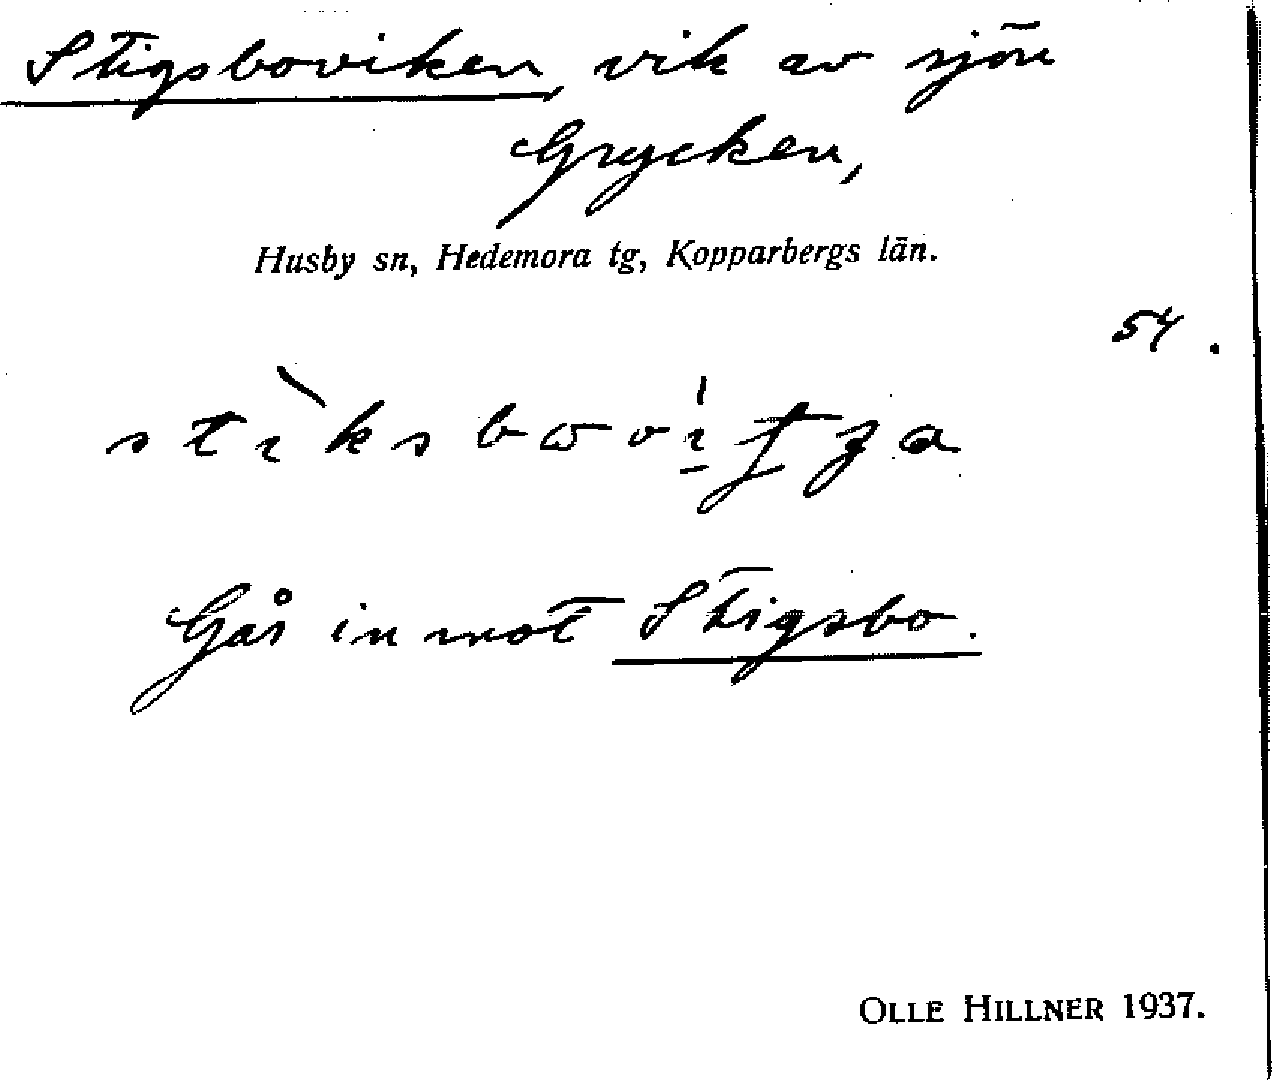 Stigsboviken, vik av sjön
Grycken,
Husby sn, Hedemora tg, Kopparbergs län.
54.
Går in mot Stigsbo.
OLLE HILLNER 1937.